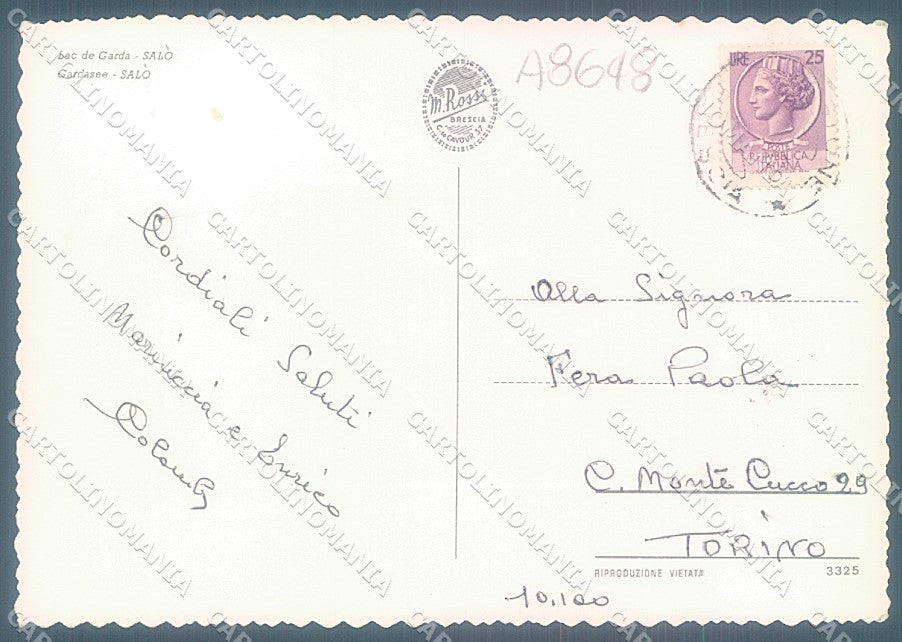 Lac de Garda - SALÒ
Gardasee - SALÒ
M. Rossi
BRESCIA
C.so CAVOUR 37
A8648
LIRE 25
POSTE
REPUBBLICA
ITALIANA
Cordiali Saluti
Mariuccia e Enrico
Alla Signora
Fera Paola
C. Monte Cucco 29
TORINO
RIPRODUZIONE VIETATA
3325
10.100
CARTOLINOMANIA